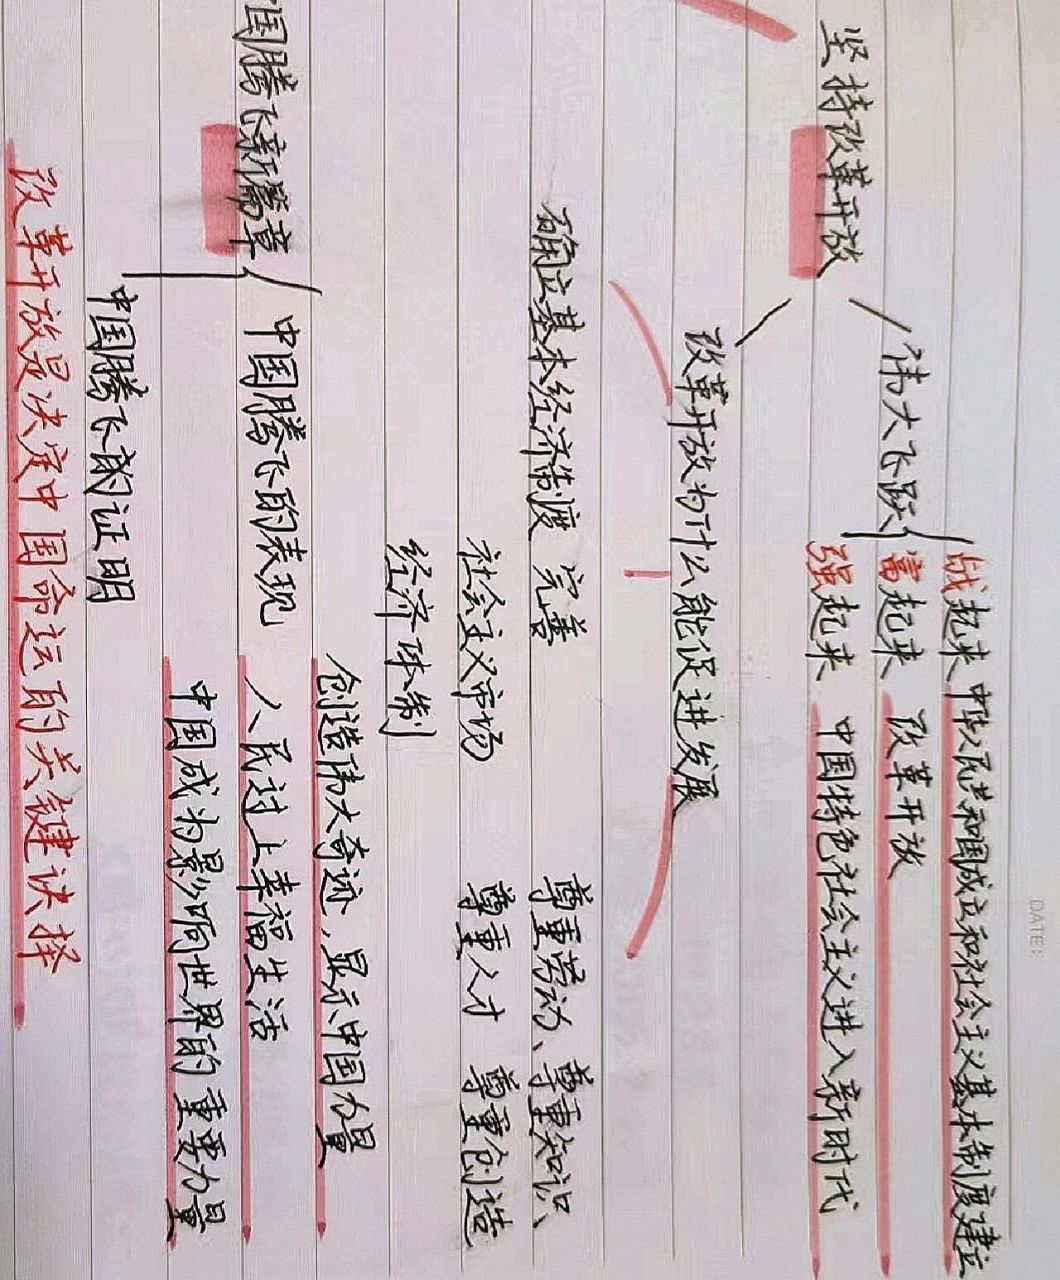 DATE:
战起来 中华人民共和国成立和社会主义基本制度建立
伟大飞跃 富起来 改革开放
坚持改革开放 强起来 中国特色社会主义进入新时代
改革开放为什么能促进发展
确立基本经济制度 完善 尊重劳动、尊重知识、
社会主义市场 尊重人才 尊重创造
经济体制
创造伟大奇迹,显示中国力量
国腾飞新篇章 中国腾飞的表现 人民过上幸福生活
中国成为影响世界的重要力量
中国腾飞的证明
改革开放是决定中国命运的关键诀择